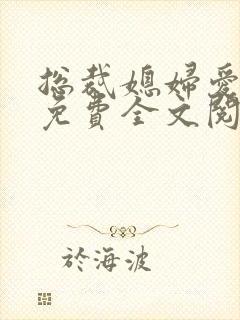 总裁媳婦爱
免費全文閱
於海波